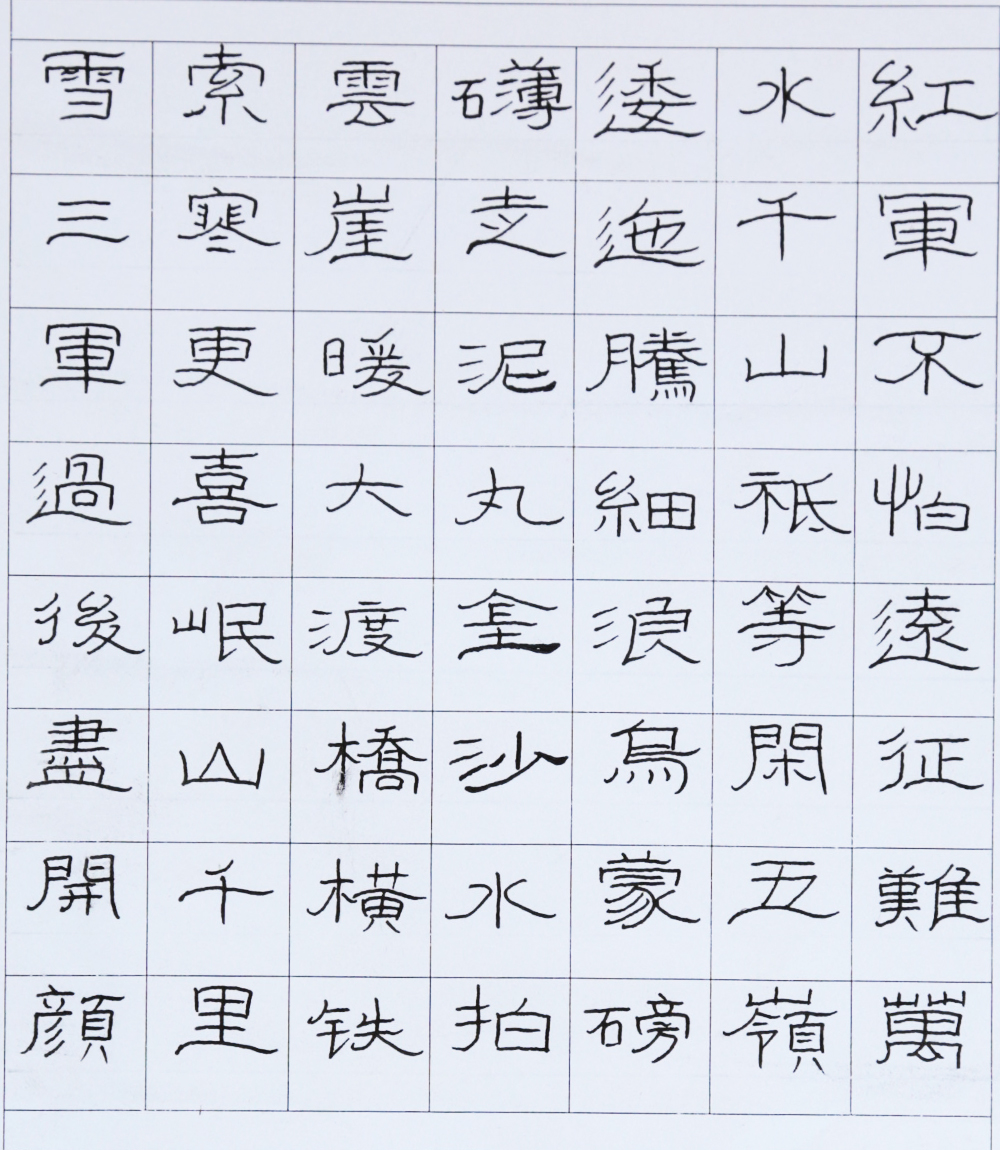 紅軍不怕遠征難萬
水千山祗等閑五嶺
逶迤騰細浪烏蒙磅
礴走泥丸金沙水拍
雲崖暖大渡橋横铁
索寒更喜岷山千里
雪三軍過後盡開顔